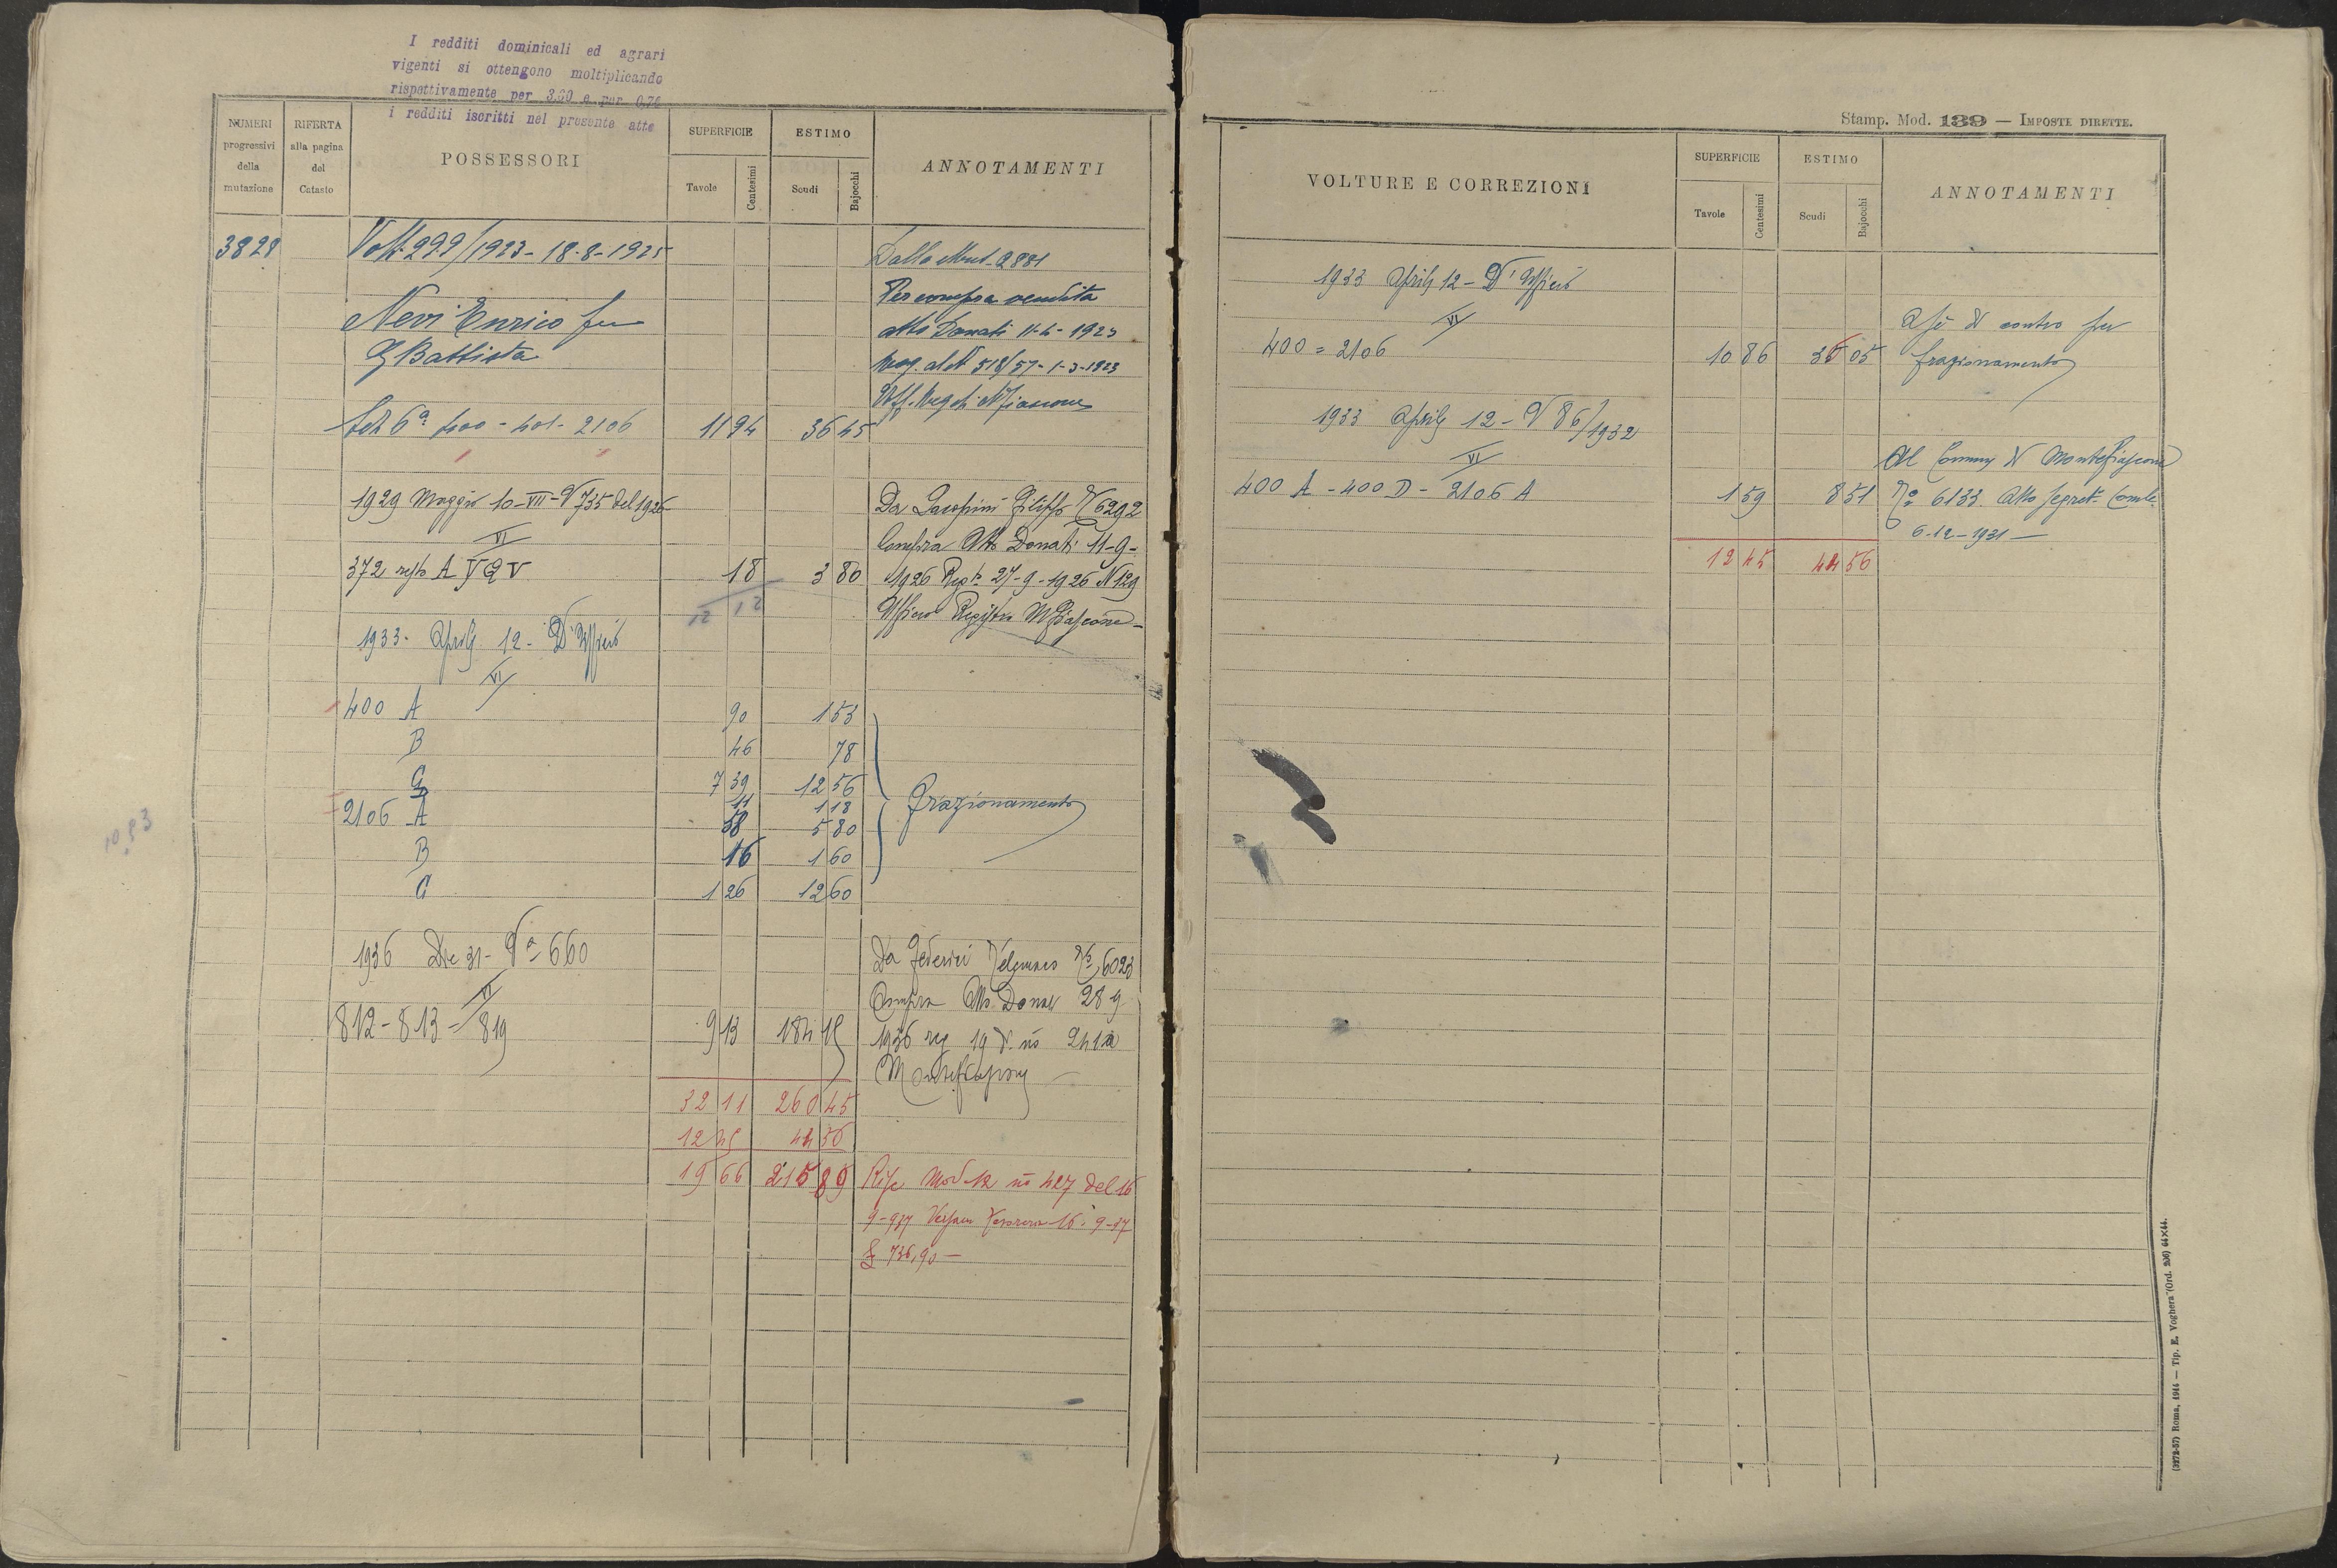 I redditi dominicali ed agrari
vigenti si ottengono moltiplicando
rispettivamente per 3,60 e per 0,74
i redditi iscritti nel presente atto
NUMERI progressivi della mutazione
RIFERTA alla pagina del Catasto
POSSESSORI
SUPERFICIE
Tavole
Centesimi
ESTIMO
Scudi
Bajocchi
ANNOTAMENTI
3828 Volt. 299/1923 - 18-8-1925 Dalla Mut. 2881
Per compra vendita
Nevi Enrico fu
atto Donati 11-2-1923
G Battista
Reg. al N 518/57-1-3-1923
Uff. Reg di Mfiascone
Sez 6a 400 - 401 - 2106 11 94 36 45
1929 Maggio 10-VII-V 735 del 1926 Da Iacopini Filippo N 6292
VI
Compra Atto Donati 11-9-
372 resto A 18 3 80 1926 Regto 27-9-1926 N 129
12 12
Ufficio Registro MFiascone -
1933 - Aprile 12 - D'Ufficio
VI
400 A 90 1 53
B 46 78
C 7 39 12 56
11 1 18
2106 A 58 5 80
Frazionamento
B 16 1 60
C 1 26 12 60
10 93
1936 Dic 31 - Va 660 Da Federici No 6023
VI
Compra Atto Donati 28 9
812 - 813 - 819 9 13 184 15 1936 reg 19 d. no 241
Montefiascone
32 11 260 45
12 45 44 56
19 66 215 89 Rife Mod 12 no 427 del 16
9-937 Tesoreria 16-9-37
£ 736,90 -
Stamp. Mod. 139 — IMPOSTE DIRETTE.
VOLTURE E CORREZIONI
SUPERFICIE
Tavole
Centesimi
ESTIMO
Scudi
Bajocchi
ANNOTAMENTI
1933 Aprile 12 - D'Ufficio
VI
A sé di contro per
400 = 2106 10 86 36 05 frazionamento
1933 Aprile 12 - V 86/1932
VI
Al Comune di Montefiascone
400 A - 400 D - 2106 A 1 59 8 51 No 6133 Atto Segret. Comle
6-12-1931 -
12 45 44 56
(3272-57) Roma, 1914 — Tip. E. Voghera (Ord. 206) 64×44.